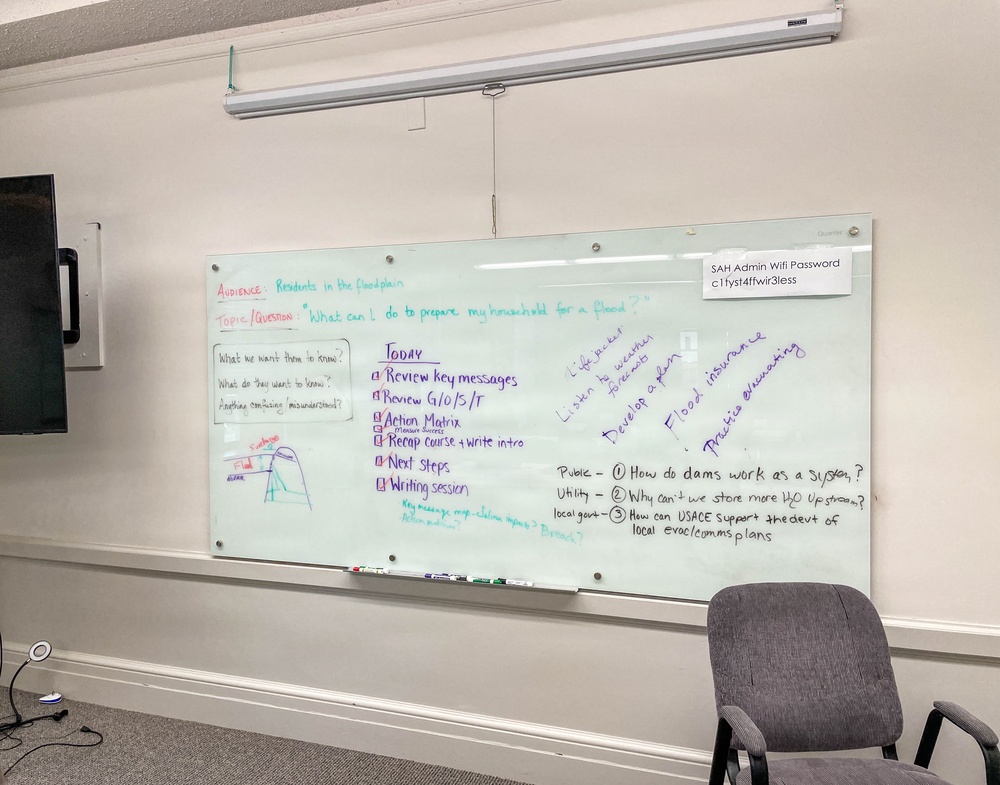 Quartet
SAH Admin Wifi Password
c1tyst4ffwir3less
AUDIENCE: Residents in the floodplain
TOPIC/QUESTION: "What can I do to prepare my household for a flood?"
What we want them to know?
What do they want to know?
Anything confusing/misunderstood?
TODAY
Review key messages
Review G/O/S/T
Action Matrix
Measure Success
Recap course + write intro
Next steps
Writing session
Key message map
Action matrix?
Breach?
Surcharge
Flood
Life jacket
Listen to weather
forecasts
Develop a plan
Flood insurance
Practice evacuating
Public - ① How do dams work as a system?
Utility - ② Why can't we store more H2O upstream?
local govt - ③ How can USACE support the devt of
local evac/comms plans